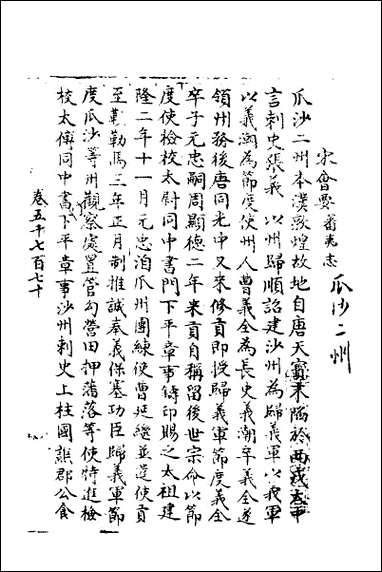 宋會要 蕃夷志
瓜沙二州
瓜沙二州本漢燉煌故地自唐天寶末陷於西戎大中
言刺史張義 以州歸順詔建沙州為歸義軍以義軍
以義潮為節度使州人曹義全為長史義潮卒義全遂
領州務後唐同光中又來修貢即授歸義軍節度義全
卒子元忠嗣周顯德二年來貢自稱留後世宗命以節
度使檢校太尉同中書門下平章事鑄印賜之太祖建
隆二年十一月元忠洎瓜州團練使曹延繼並遣使貢
至勒馬三年正月制推誠奉義保塞功臣歸義軍節
度瓜沙等州觀察處置管勾營田押蕃落等使特進檢
校太傅同中書下平章事沙州刺史上柱國譙郡公食
卷五千七百七十